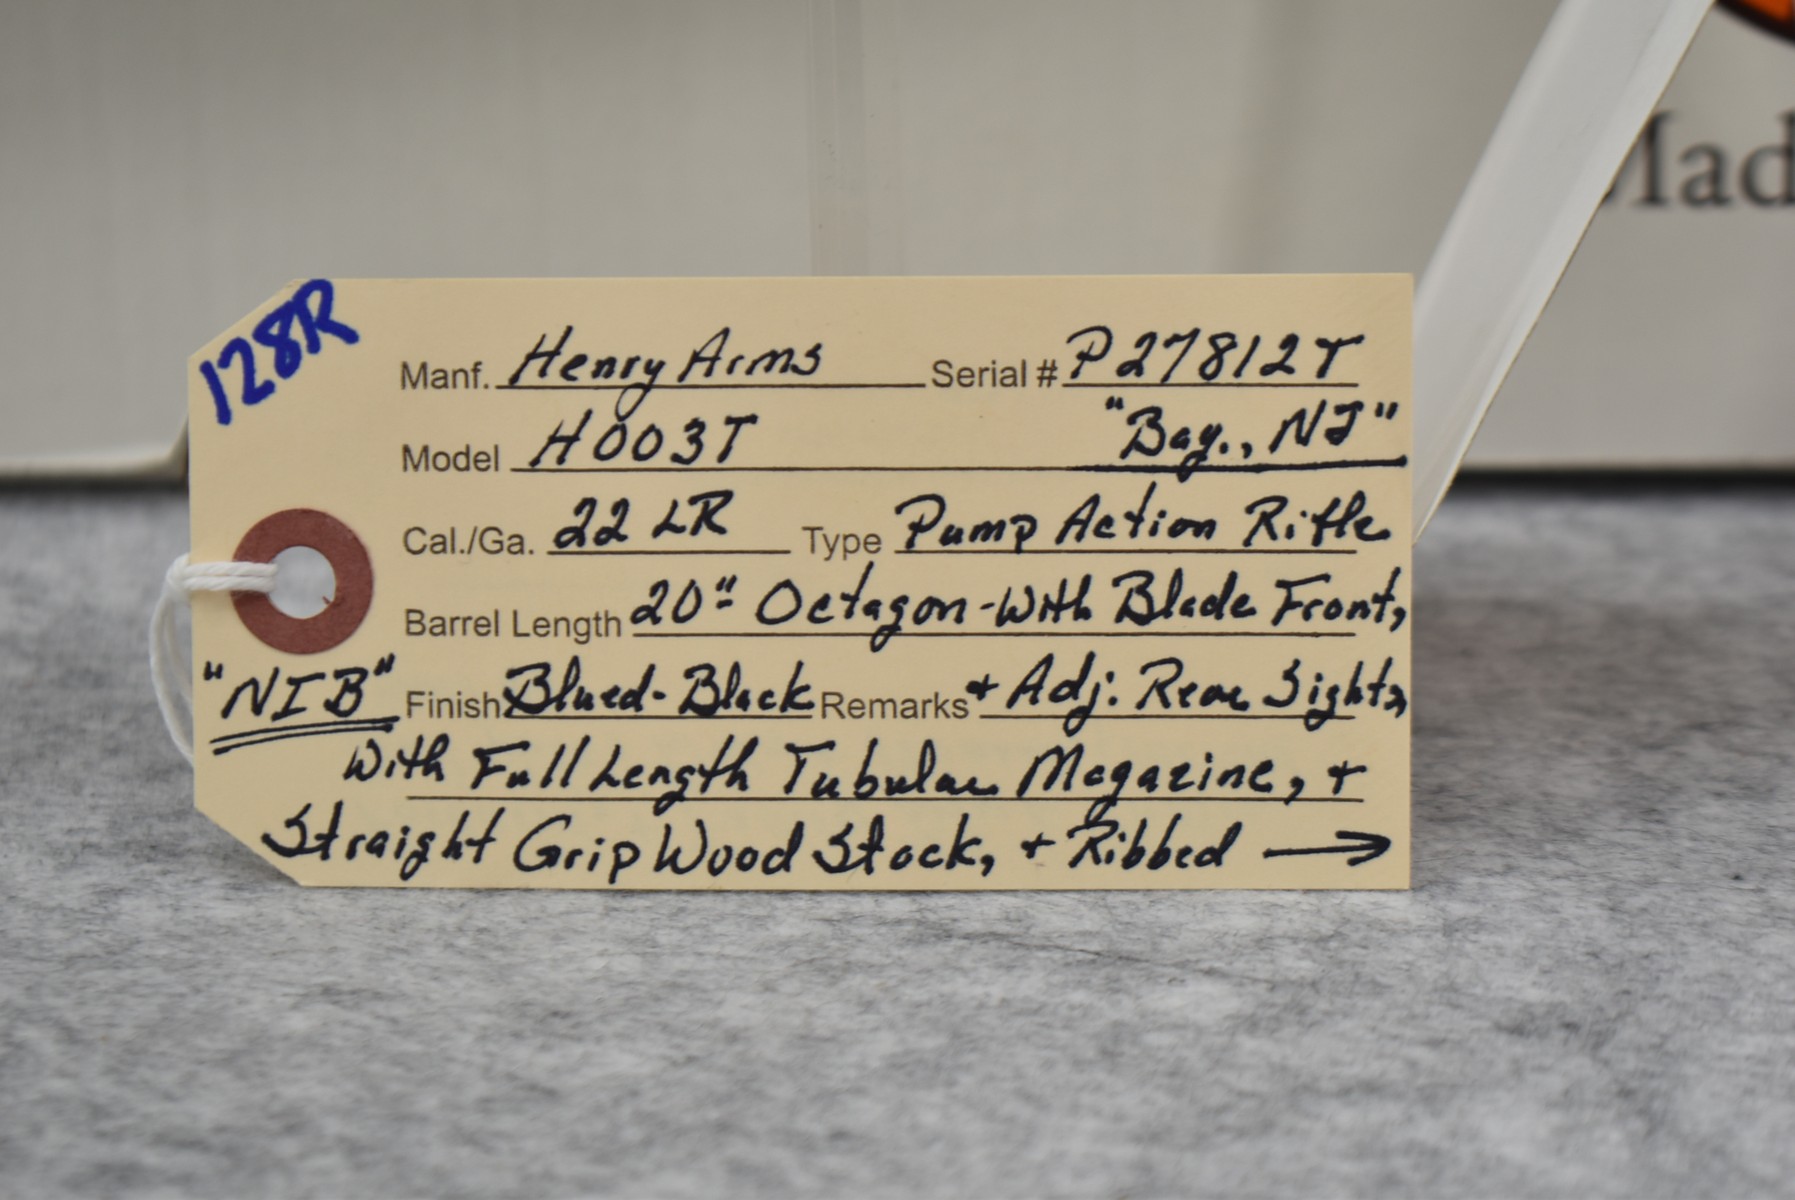 Mad
128R
Manf. Henry Arms Serial # P27812T
Model H003T "Bay., NJ"
Cal./Ga. 22 LR Type Pump Action Rifle
Barrel Length 20" Octagon-With Blade Front,
"NIB" Finish Blued-Black Remarks + Adj. Rear Sights,
With Full Length Tubular Magazine, +
Straight Grip Wood Stock, + Ribbed →